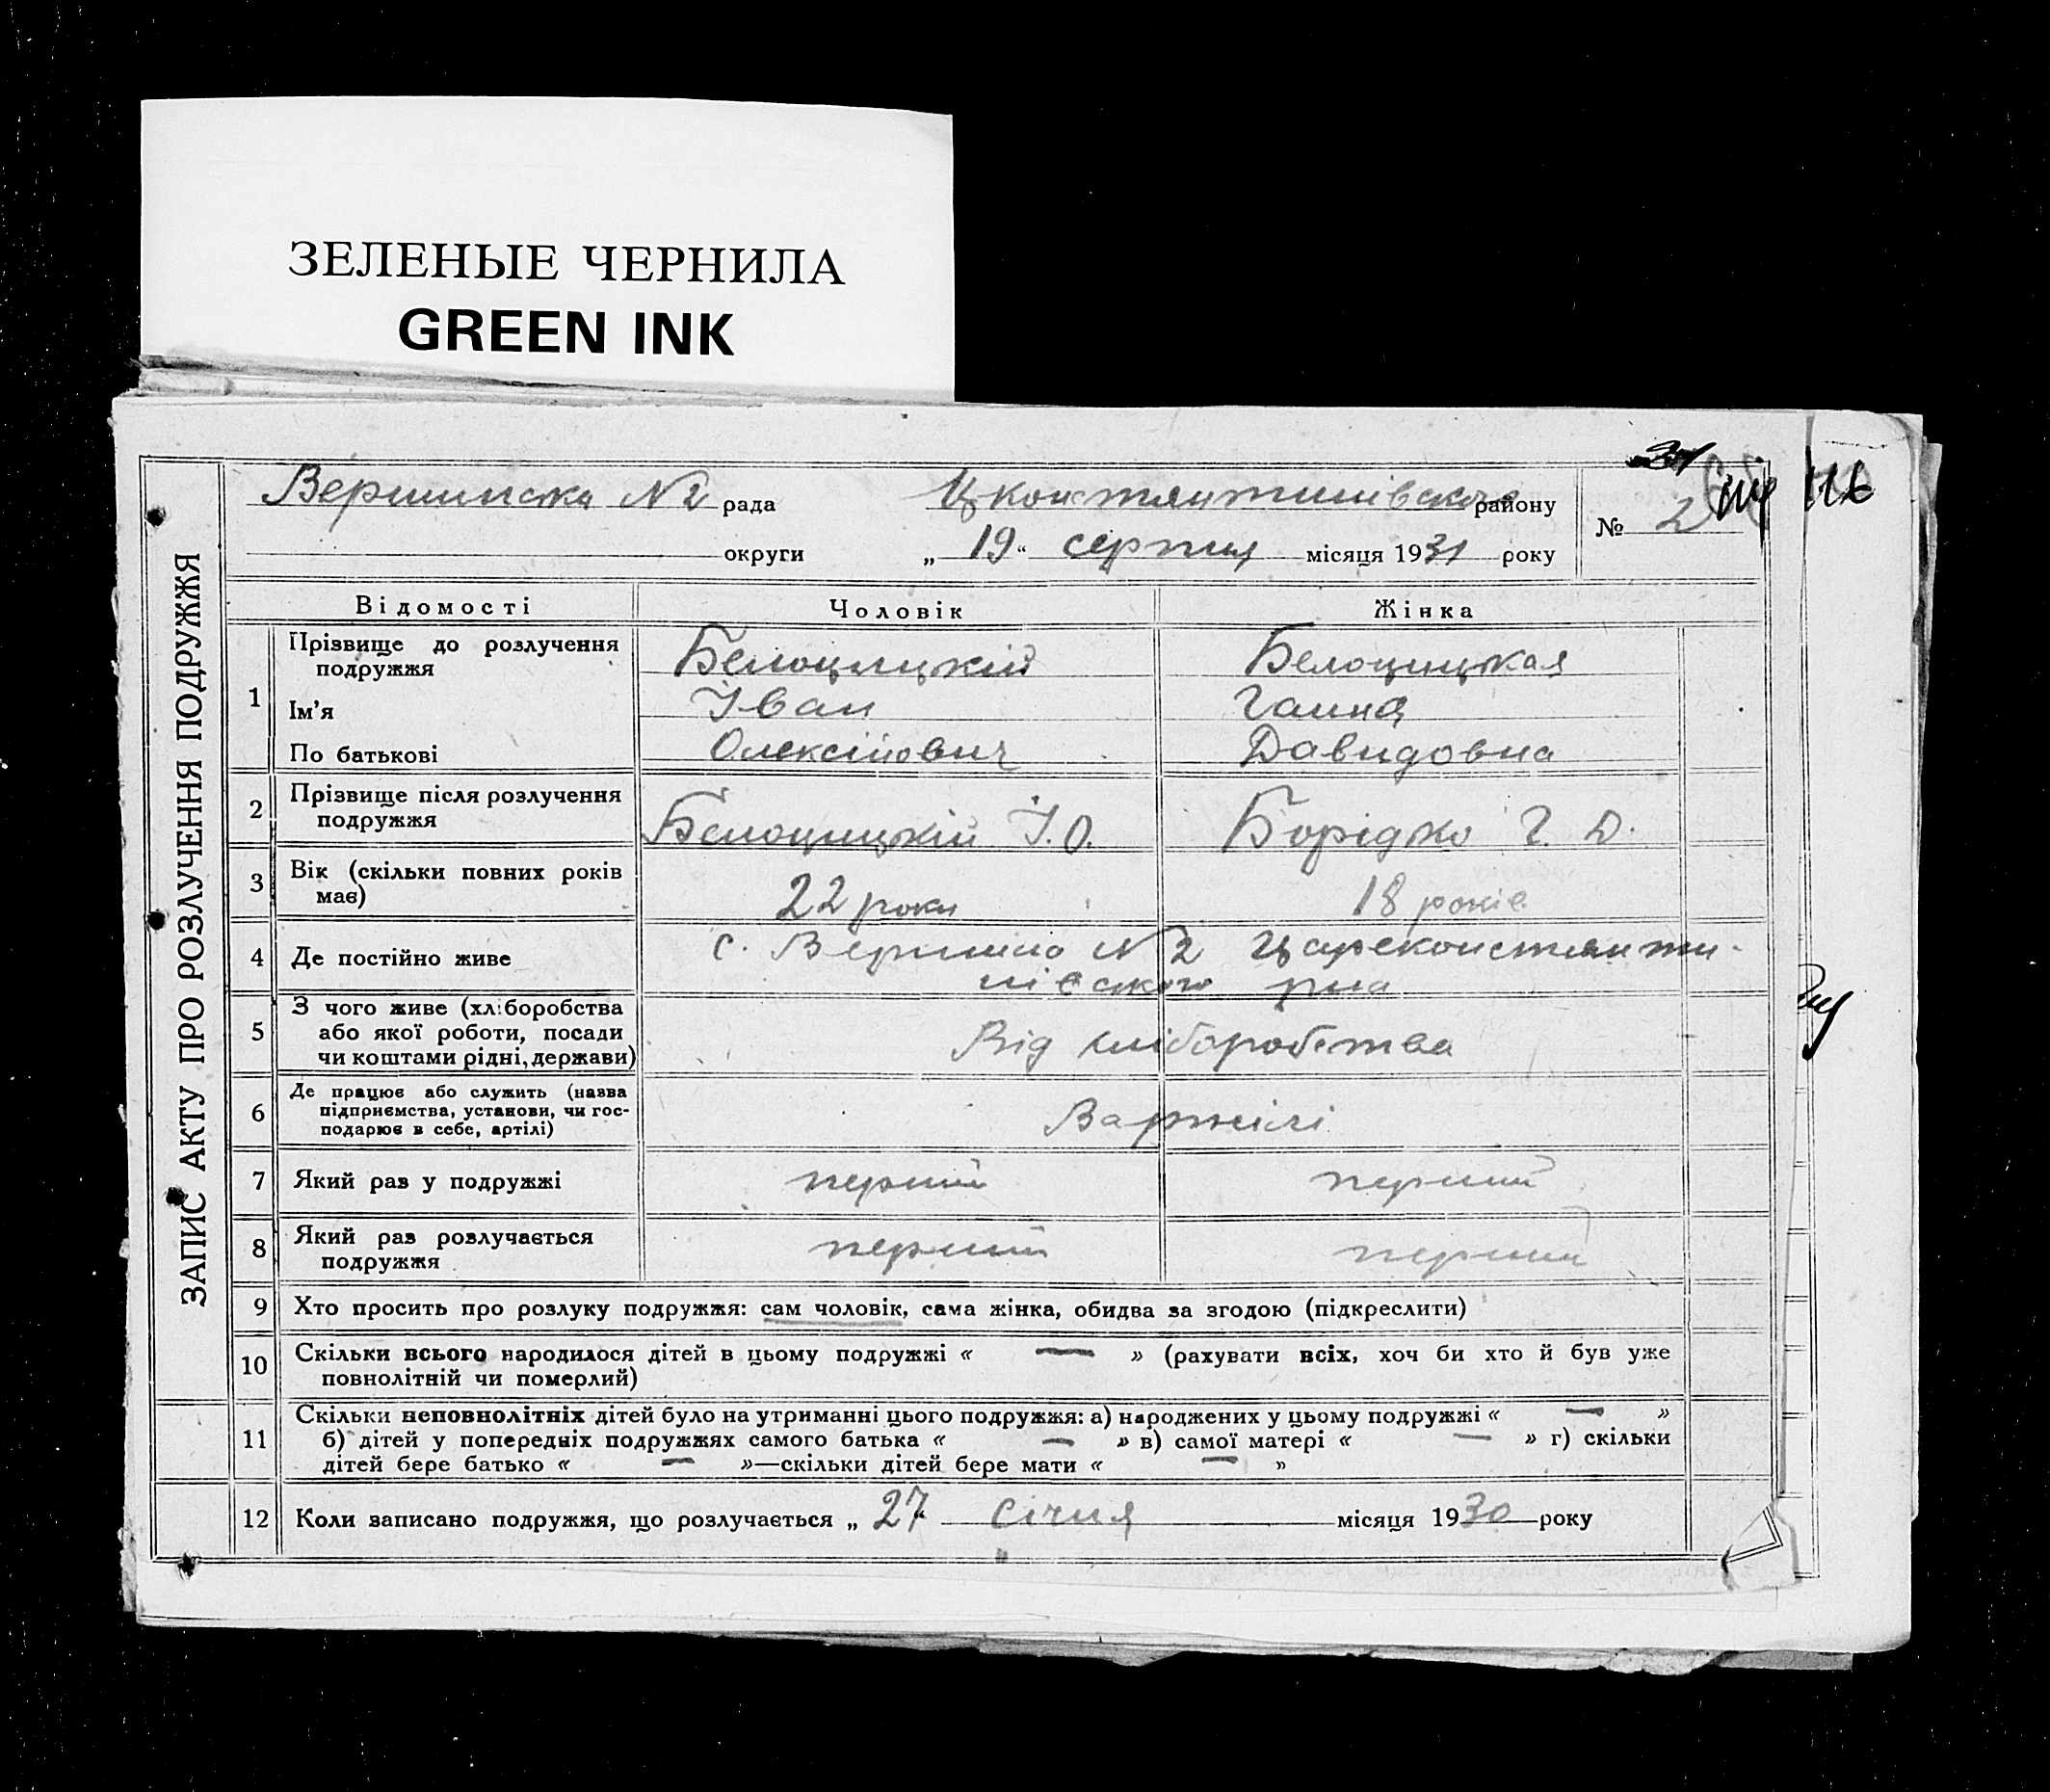 ЗЕЛЕНЫЕ ЧЕРНИЛА
GREEN INK
Вершинська №2 рада Цконстянтинівского району № 2
округи „19“ серпня місяця 1931 року
ЗАПИС АКТУ ПРО РОЗЛУЧЕННЯ ПОДРУЖЖЯ
Відомості Чоловік Жінка
1 Прізвище до розлучення подружжя Белоцицкій Белоцицкая
Ім'я Іван Ганна
По батькові Олексійович Давидовна
2 Прізвище після розлучення подружжя Белоцицкій І.О. Борідко Г. Д.
3 Вік (скільки повних років має) 22 роки 18 років
4 Де постійно живе с. Вершина №2 Цареконстянти-
нівского рна
5 З чого живе (хліборобства
або якої роботи, посади
чи коштами рідні, держави) Від хліборобства
6 Де працює або служить (назва
підприємства, установи, чи гос-
подарює в себе, артілі) Вартілі
7 Який раз у подружжі перший перший
8 Який раз розлучається подружжя перший перший
9 Хто просить про розлуку подружжя: сам чоловік, сама жінка, обидва за згодою (підкреслити)
10 Скільки всього народилося дітей в цьому подружжі « — » (рахувати всіх, хоч би хто й був уже
повнолітній чи померлий)
11 Скільки неповнолітніх дітей було на утриманні цього подружжя: а) народжених у цьому подружжі « — »
б) дітей у попередніх подружжях самого батька « — » в) самої матері « — » г) скільки
дітей бере батько « — »—скільки дітей бере мати « — »
12 Коли записано подружжя, що розлучається „27“ січня місяця 1930 року